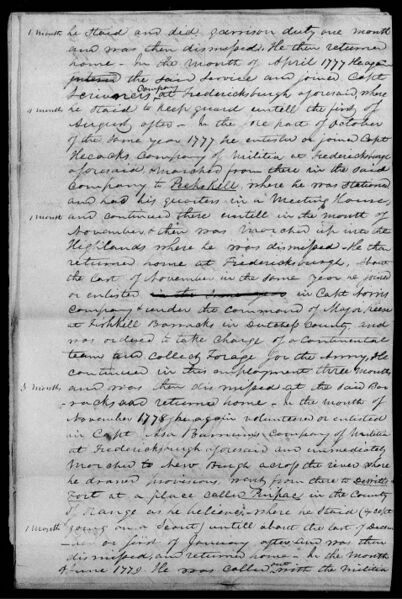 1 Month he Staid and did garrison duty one month
and was then dismissed. He then returned
home - In the month of April 1777 He
the said Service and joined Capt
Company at Fredericksburgh aforesaid, where
4 Month he Staid to keep guard untill the first of
August after - In the fore part of October
of the same year 1777 he enlisted or joined Capt
Hecocks Company of Militia at Fredericksburgh
aforesaid & marched from there in the said
Company to Peekskill, where he was Stationed
and had his quarters in a Meeting House,
1 Month and continued there untill in the month of
November & then was Marched up into the
Highlands where he was dismissed - He then
returned home at Fredericksburgh, About
the last of November in the same year he joined
or enlisted in the same year in Capt Norris
Company & under the command of Major
at Fishkill Barracks in Dutchess County, and
was ordered to take charge of a Continental
team and Collect Forage for the Army, He
continued in this employment three Months
3 Months and was then dismissed at the said Bar-
-racks and returned home - In the month of
November 1778 he again volunteered or enlisted
in Capt Asa Barnums Company of Militia
at Fredericksburgh aforesaid and immediately
Marched to New Burgh across the river where
he drawed provisions, went from there to
Fort at a place called in the County
of Orange as he believes, where he Staid (except
1 Month going on a Scout) untill about the last of Decem
or first of January after, and was then
dismissed, and returned home - In the month
of June 1779 He was called out with the Militia